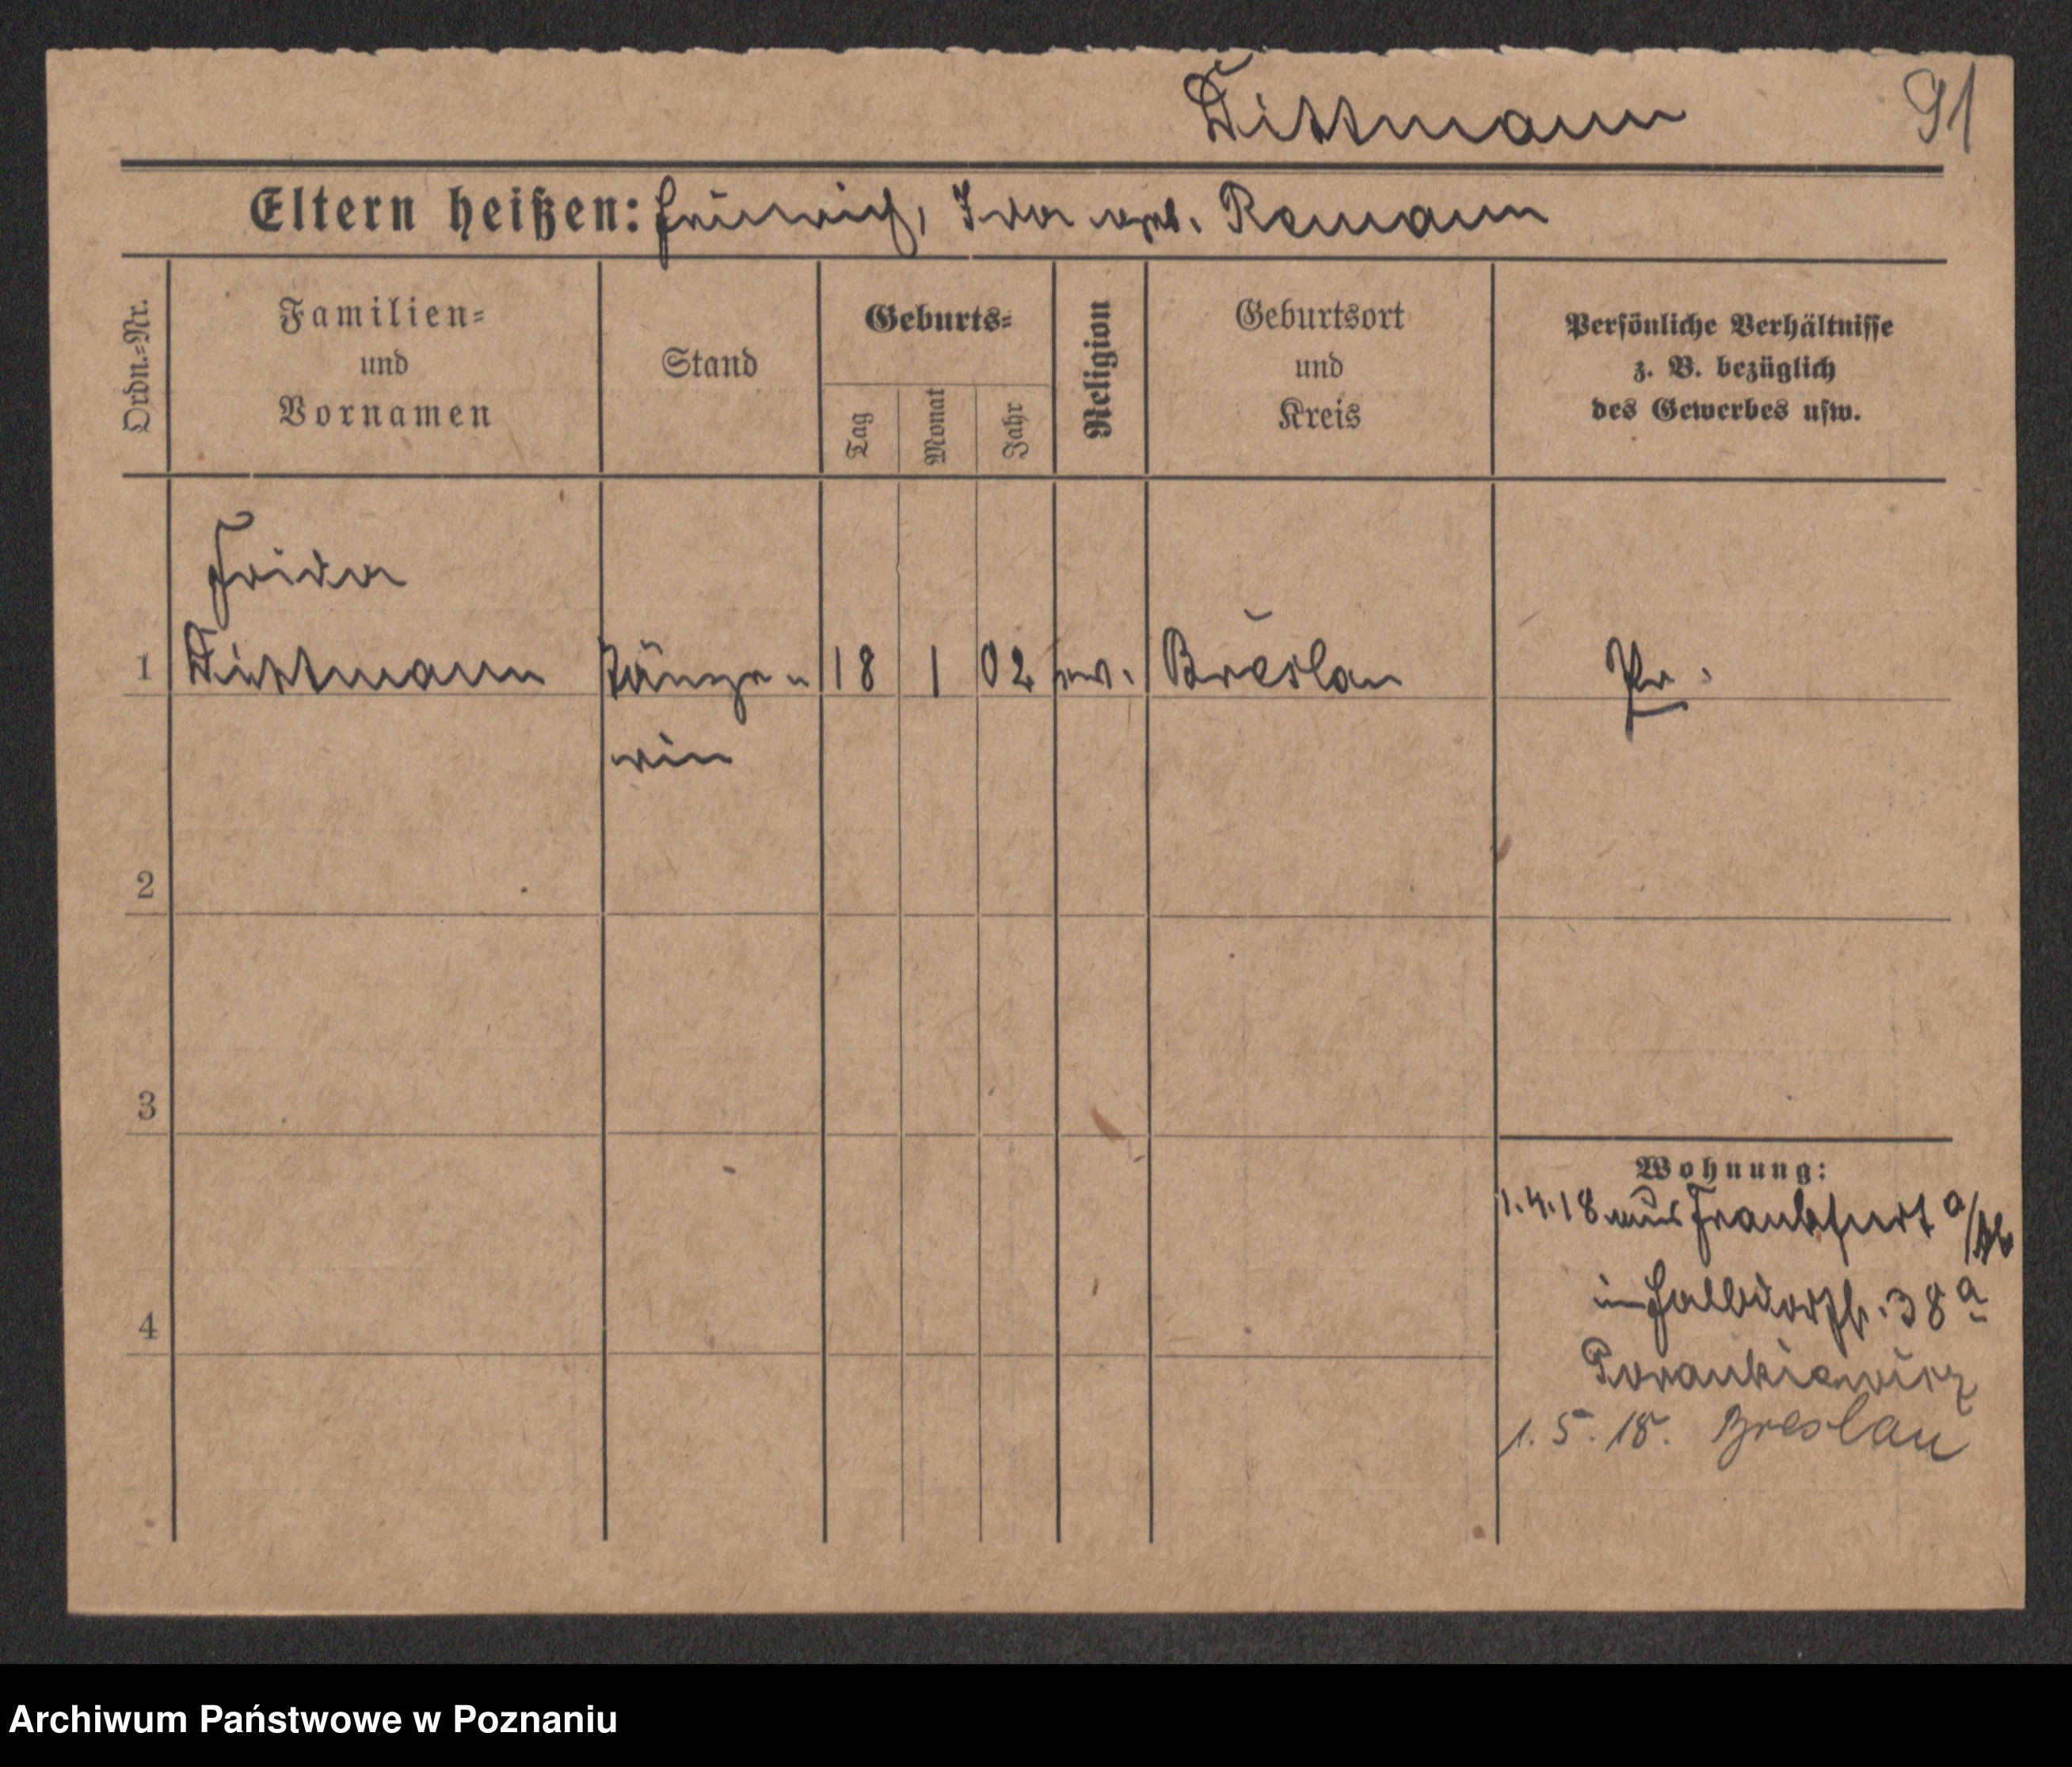 Dittmann 91
Eltern heißen: Heinrich, Ida geb. Remann
Ordn.=Nr. Familien= und Vornamen Stand Geburts= Tag Monat Jahr Religion Geburtsort und Kreis Persönliche Verhältnisse z. B. bezüglich des Gewerbes usw.
Frida
1 Dittmann Sänge- 18 1 02 ev. Breslau Pr.
rin
2
3
Wohnung:
1.4.18 aus Frankfurt a/
in Halldorfstr. 38a
4
1.5.18. Breslau
Archiwum Państwowe w Poznaniu